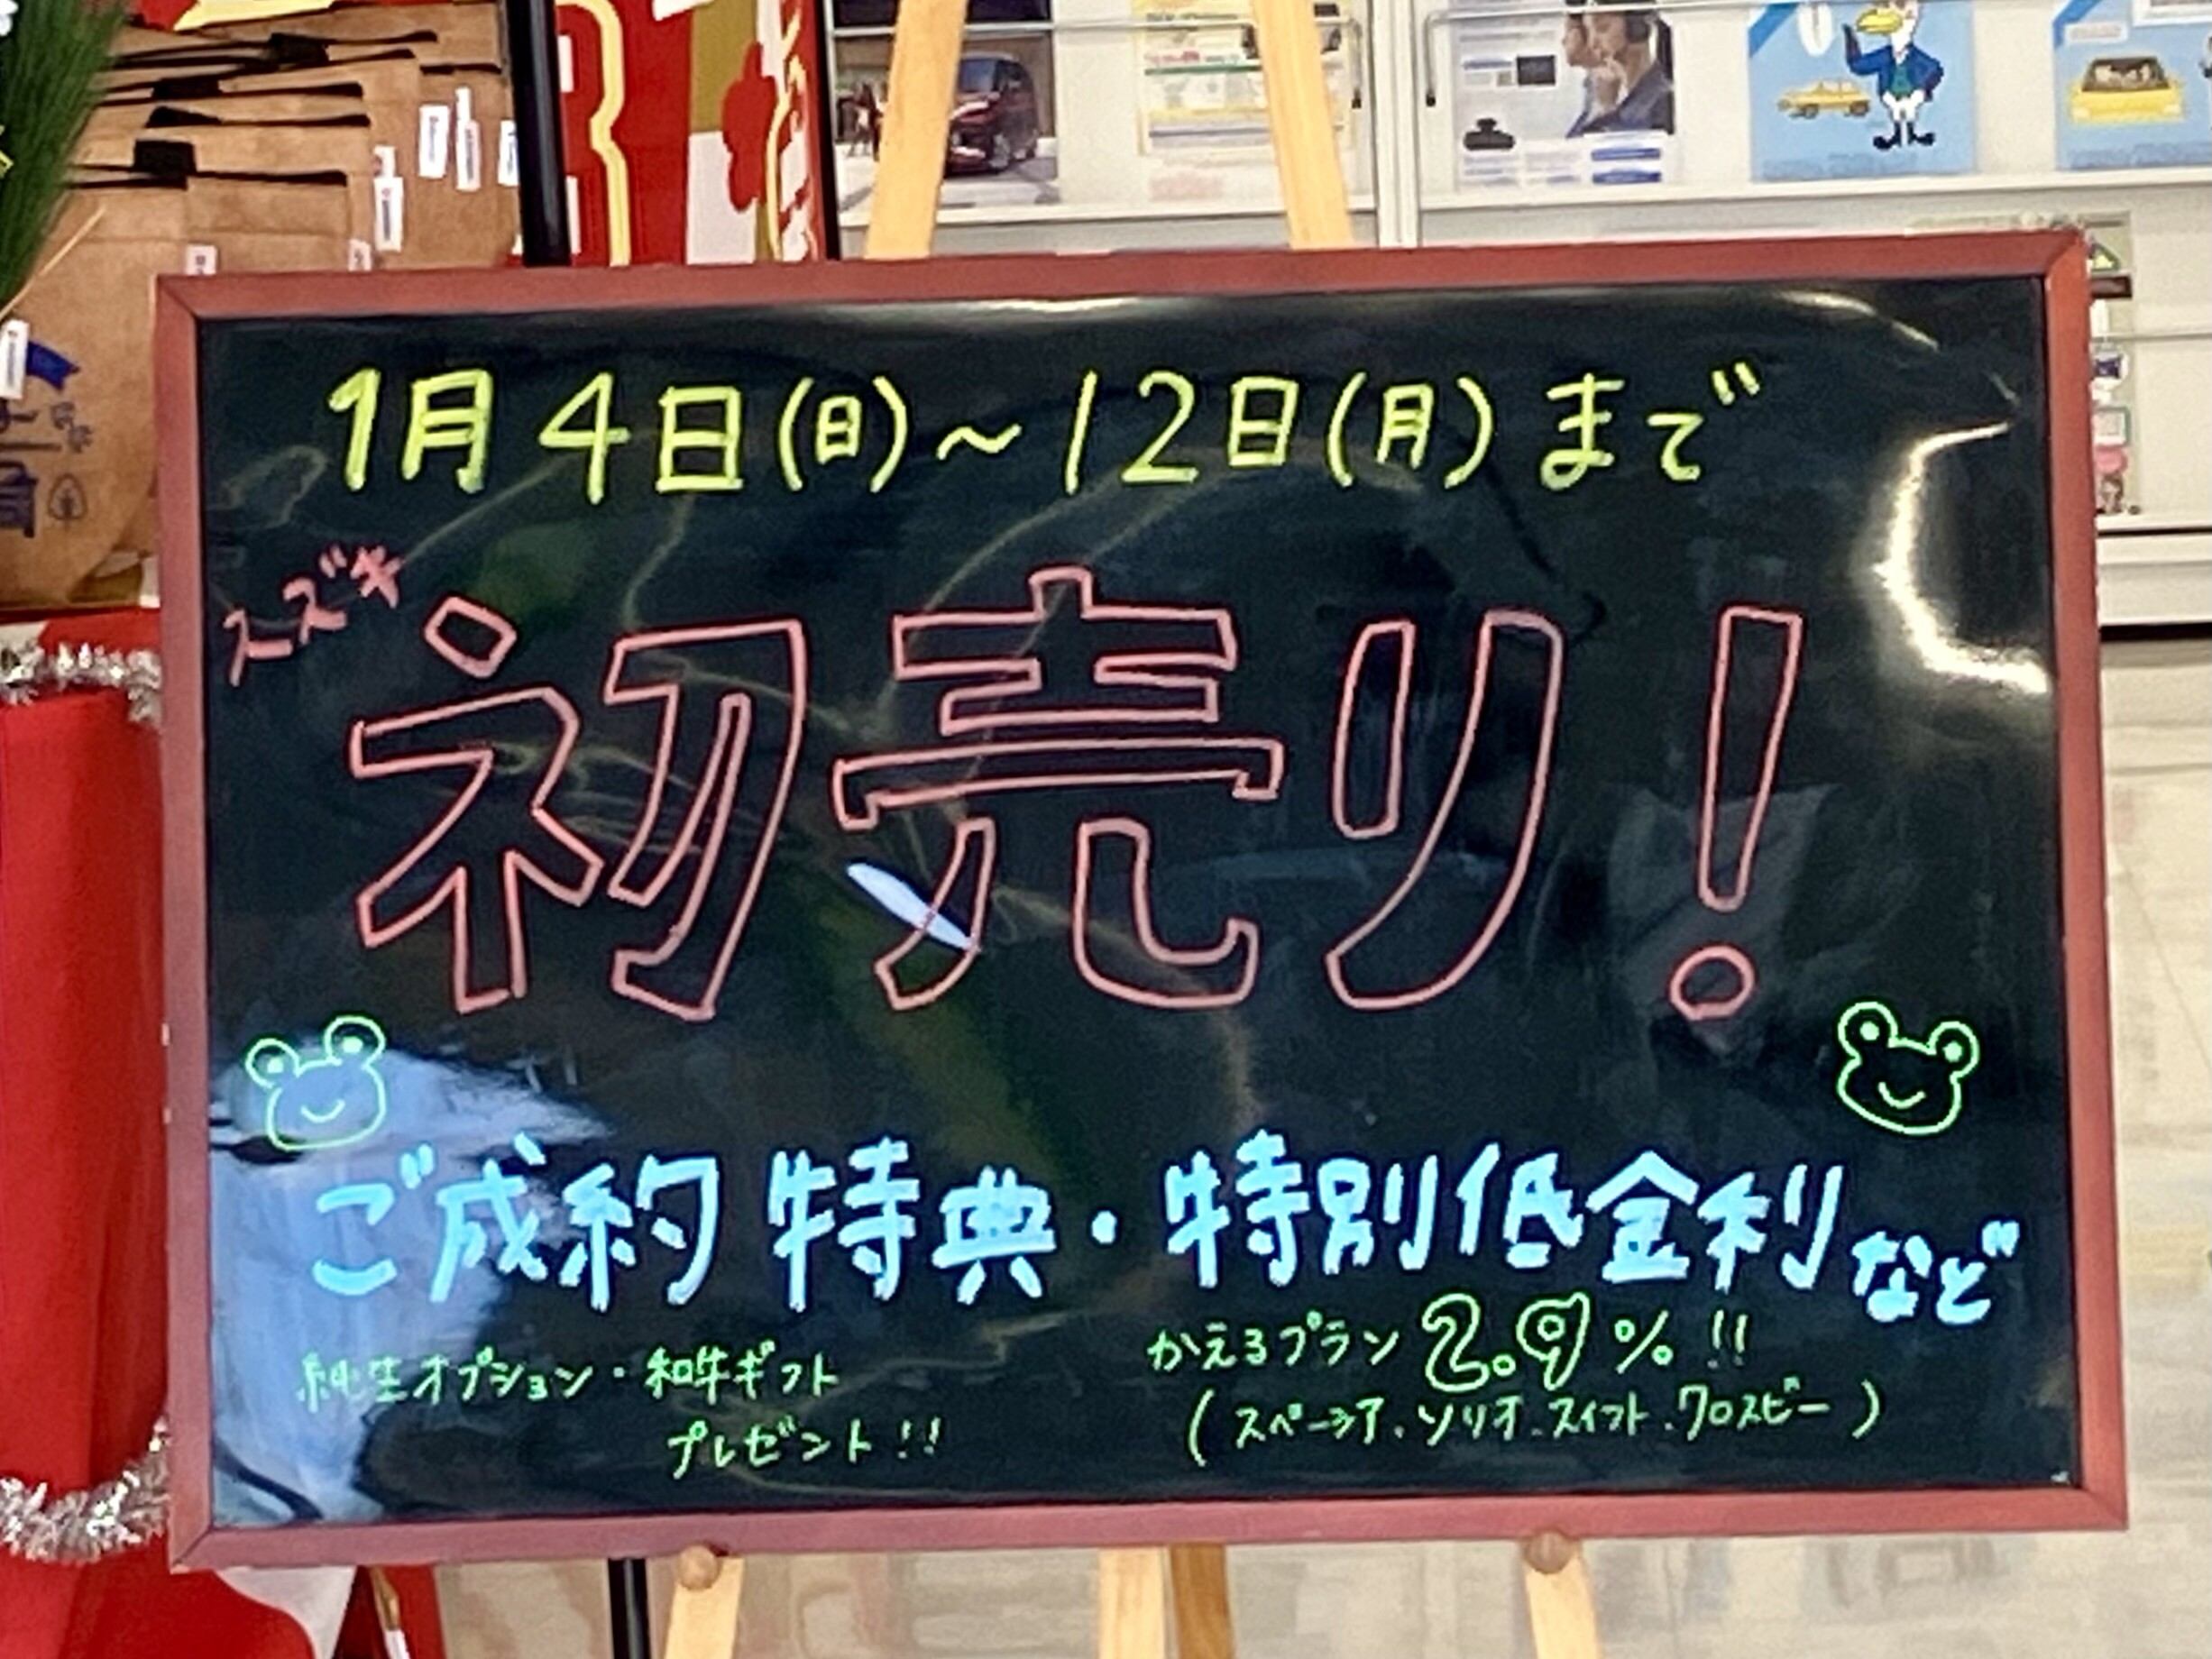 1月4日(日)～12日(月)まで
スズキ
初売り!
ご成約特典・特別低金利など
純生オプション・和牛ギフト
プレゼント!!
かえるプラン 2.9%!!
(スペーシア、ソリオ、スイフト、クロスビー)